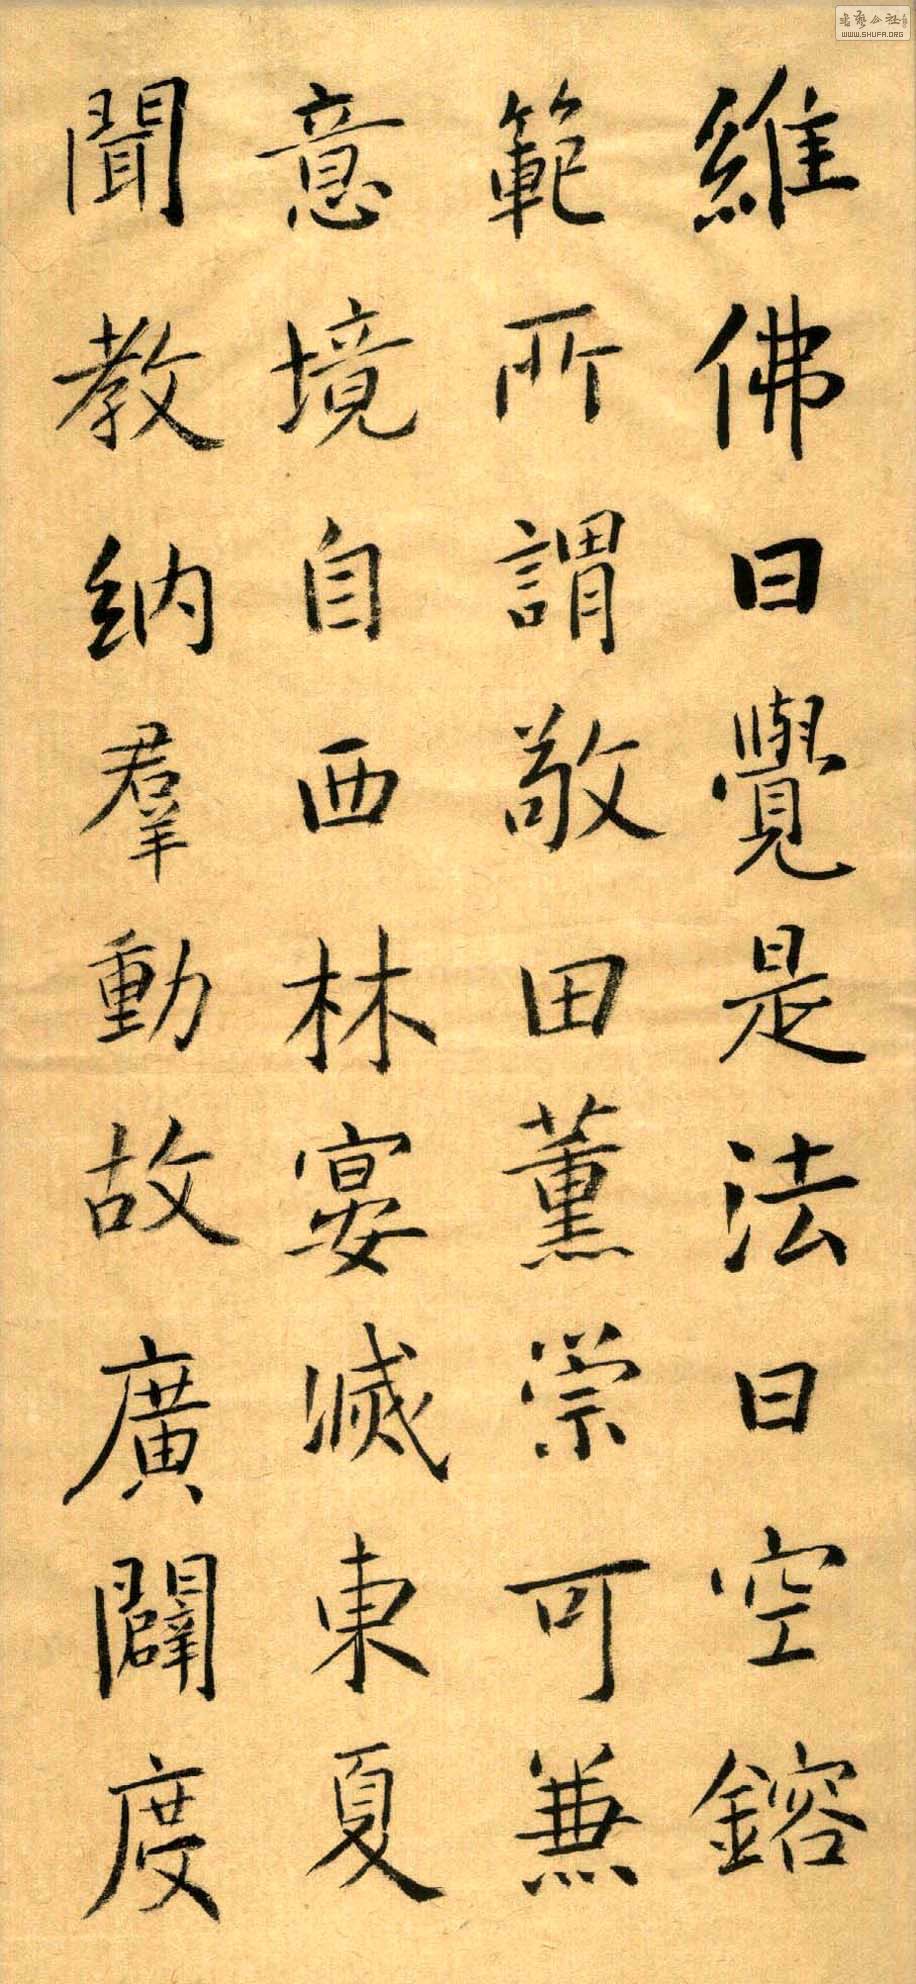 維佛曰覺是法曰空鎔
範所謂敬田薰崇可兼
意境自西林宴滅東夏
聞教納羣動故廣闢度
WWW.SHUFA.ORG